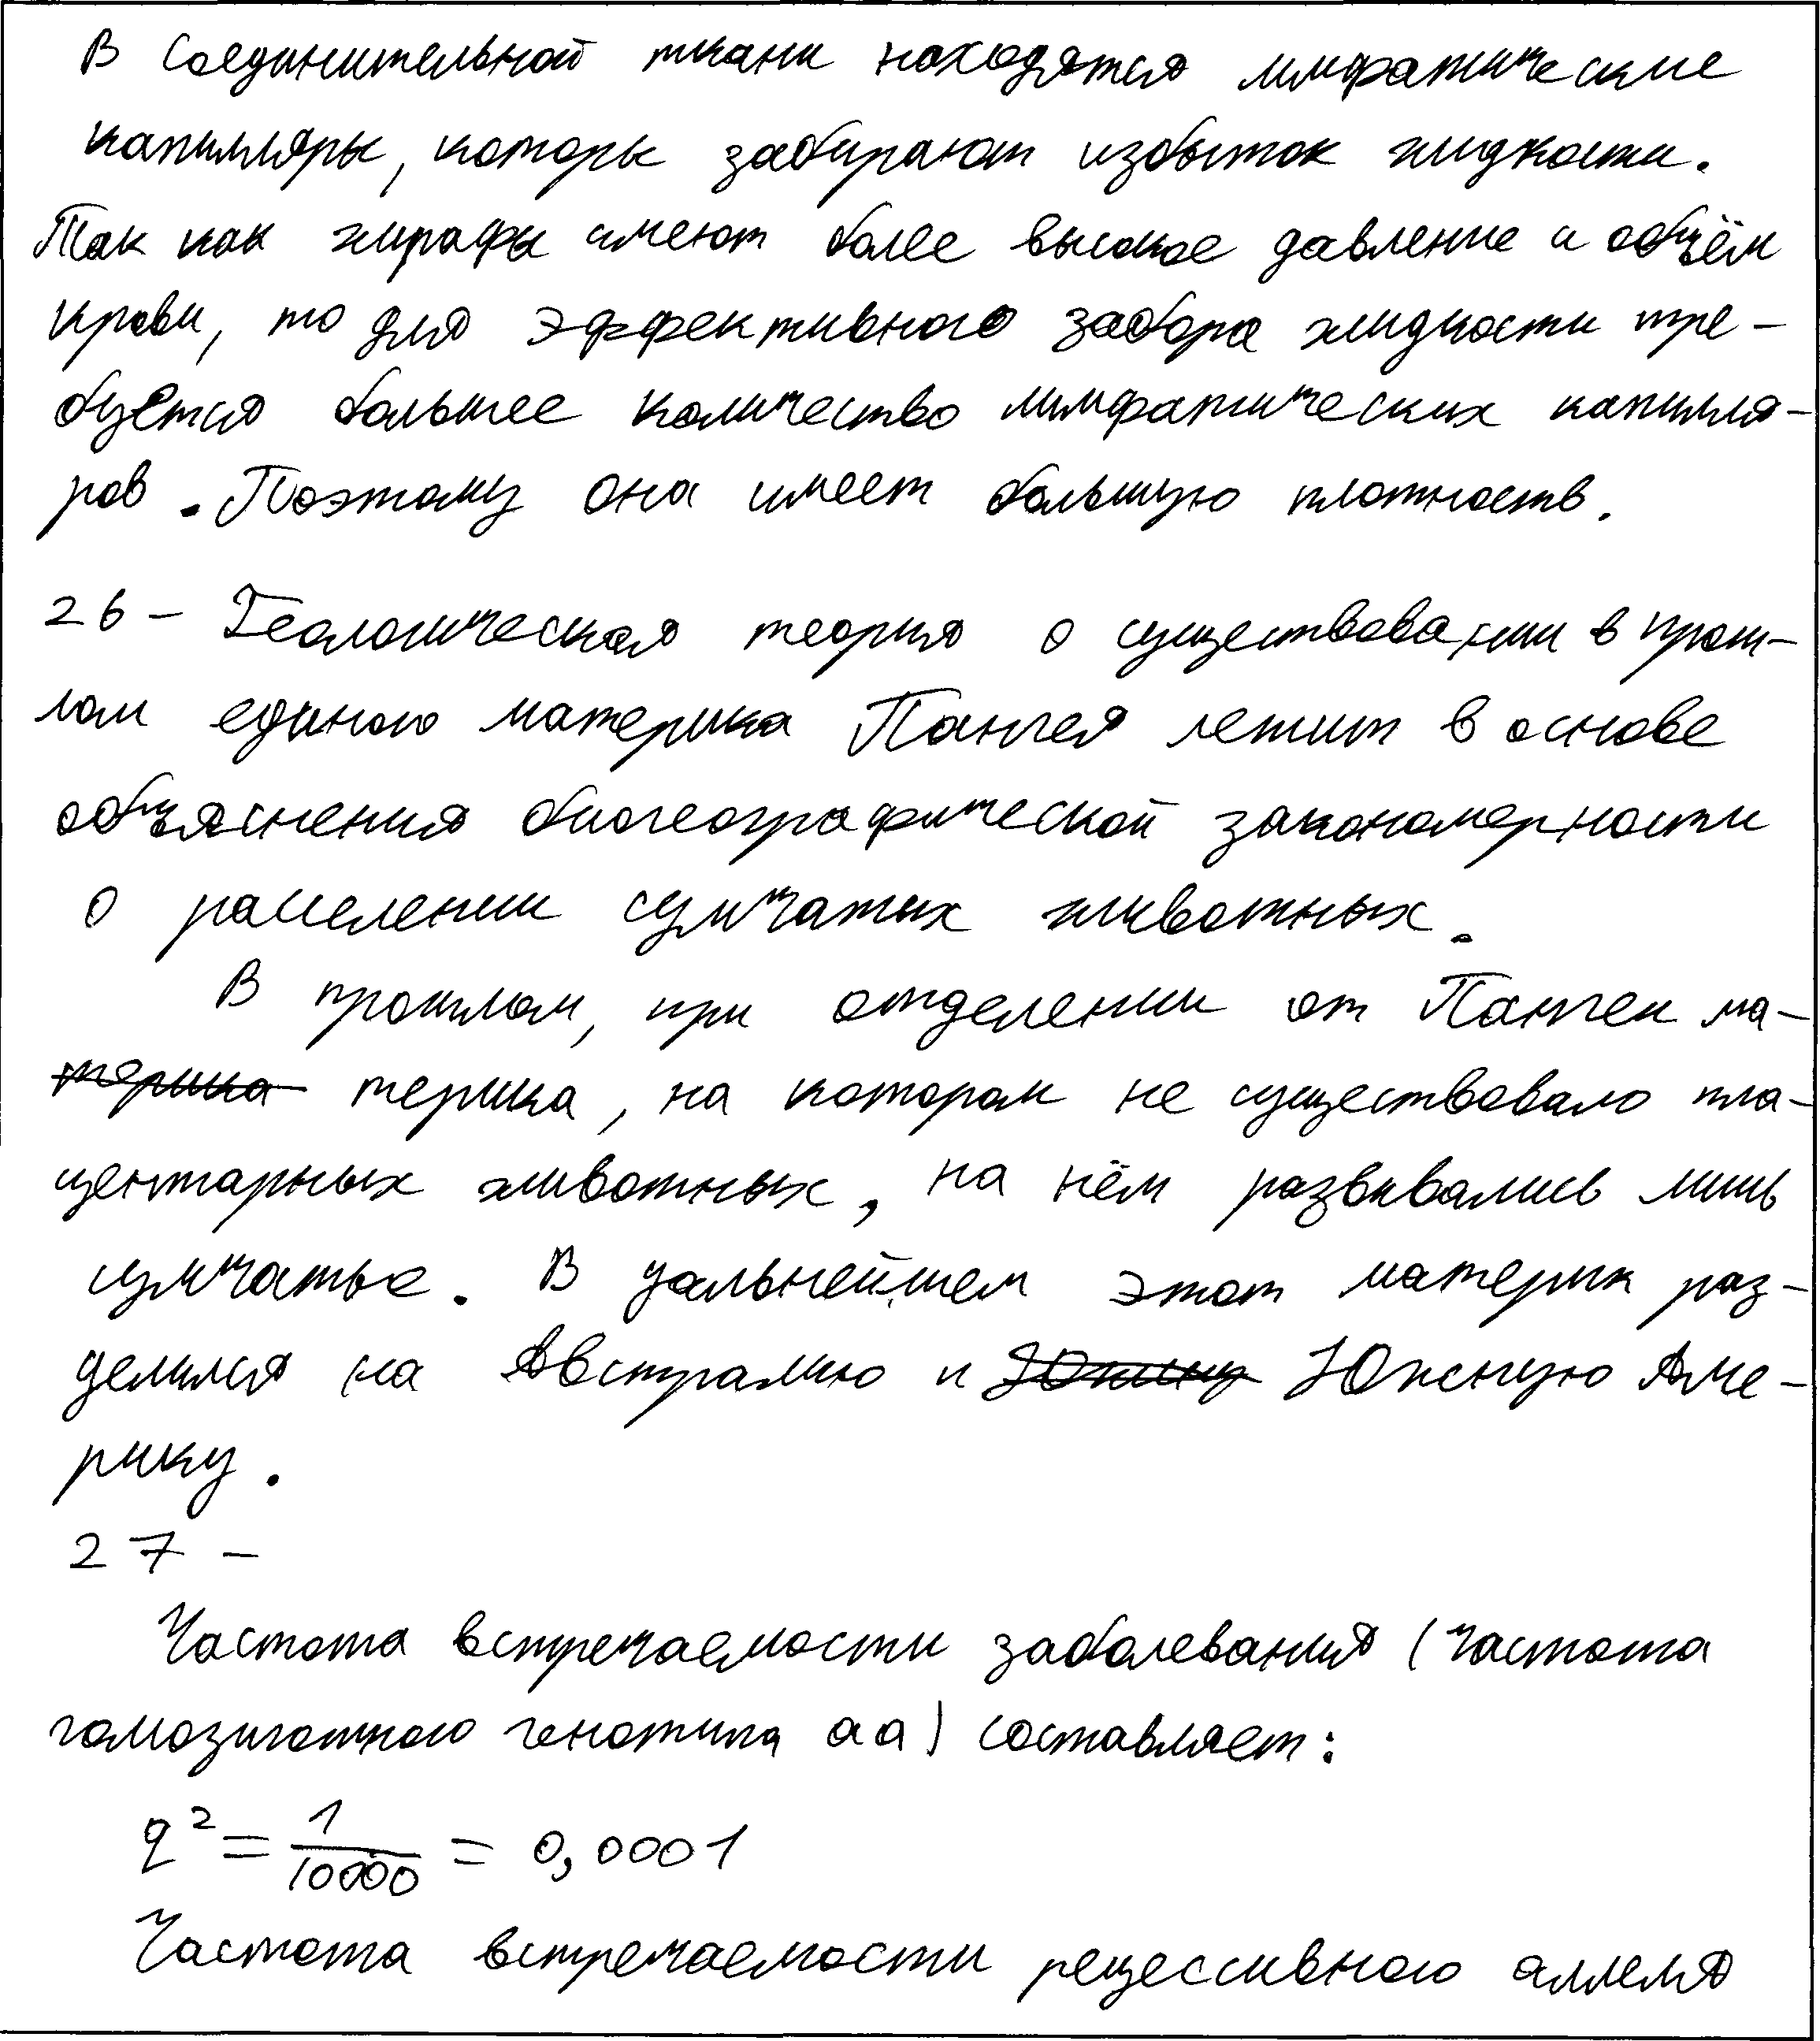 В соединительной ткани находятся лимфатические
капилляры, которые забирают избыток жидкости.
Так как жирафы имеют более высокое давление и объём
крови, то для эффективного забора жидкости тре-
буется большее количество лимфатических капилля-
ров. Поэтому она имеет большую плотность.
26 - Геологическая теория о существовании в прош-
лом единого материка Пангея лежит в основе
объяснения биогеографической закономерности
о расселении сумчатых животных.
В прошлом, при отделении от Пангеи ма-
терика терика, на котором не существовало пла-
центарных животных, на нём развивались лишь
сумчатые. В дальнейшем этот материк раз-
делился на Австралию и Южную Аме-
рику.
27 -
Частота встречаемости заболевания (частота
гомозиготного генотипа аа) составляет:
q² = 1/10000 = 0,0001
Частота встречаемости рецессивного аллеля